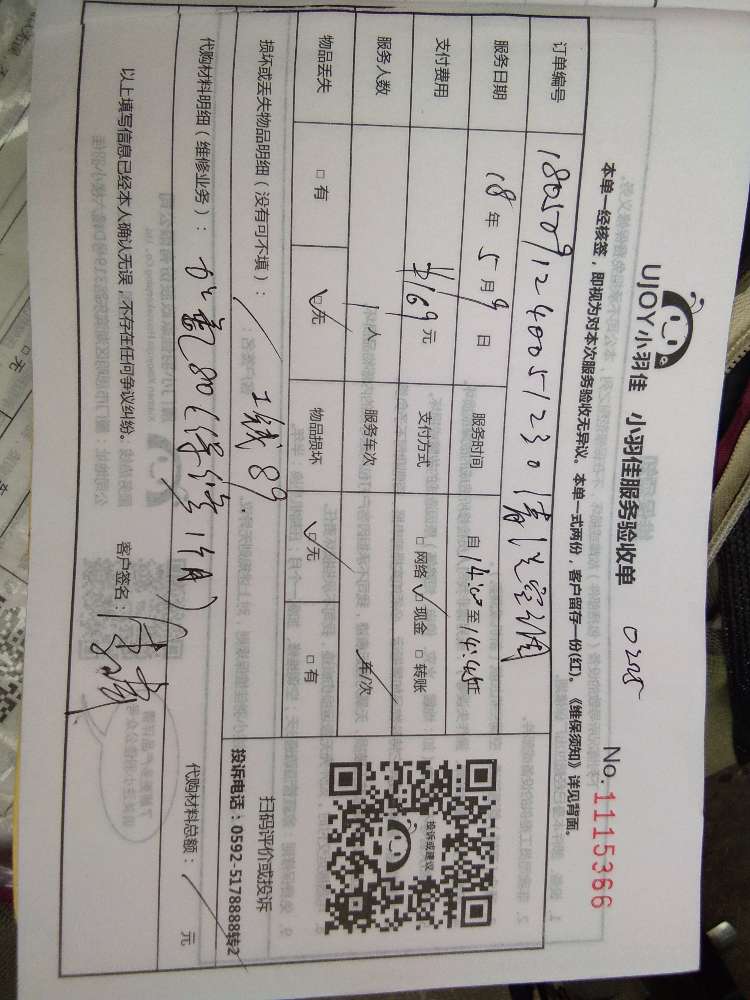 UJOY小羽佳 小羽佳服务验收单 0225 No.1115366
本单一经核签，即视为对本次服务验收无异议。本单一式两份，客户留存一份(红)。《维保须知》详见背面。
订单编号 1805091240051230 清洗空调
服务日期 18年5月9日 服务时间 自14:00至14:45止
支付费用 ¥169元 支付方式 □网络 ☑现金 □转账
服务人数 1人 服务车次 车/次
物品丢失 □有 ☑无 物品损坏 ☑无 □有
损坏或丢失物品明细（没有可不填）： / 工钱89.
代购材料明细（维修业务）： 加氟80（保修1个月） 代购材料总额： / 元
以上填写信息已经本人确认无误，不存在任何争议纠纷。 客户签名：
投诉或建议
扫码评价或投诉
投诉电话：0592-5178888转2